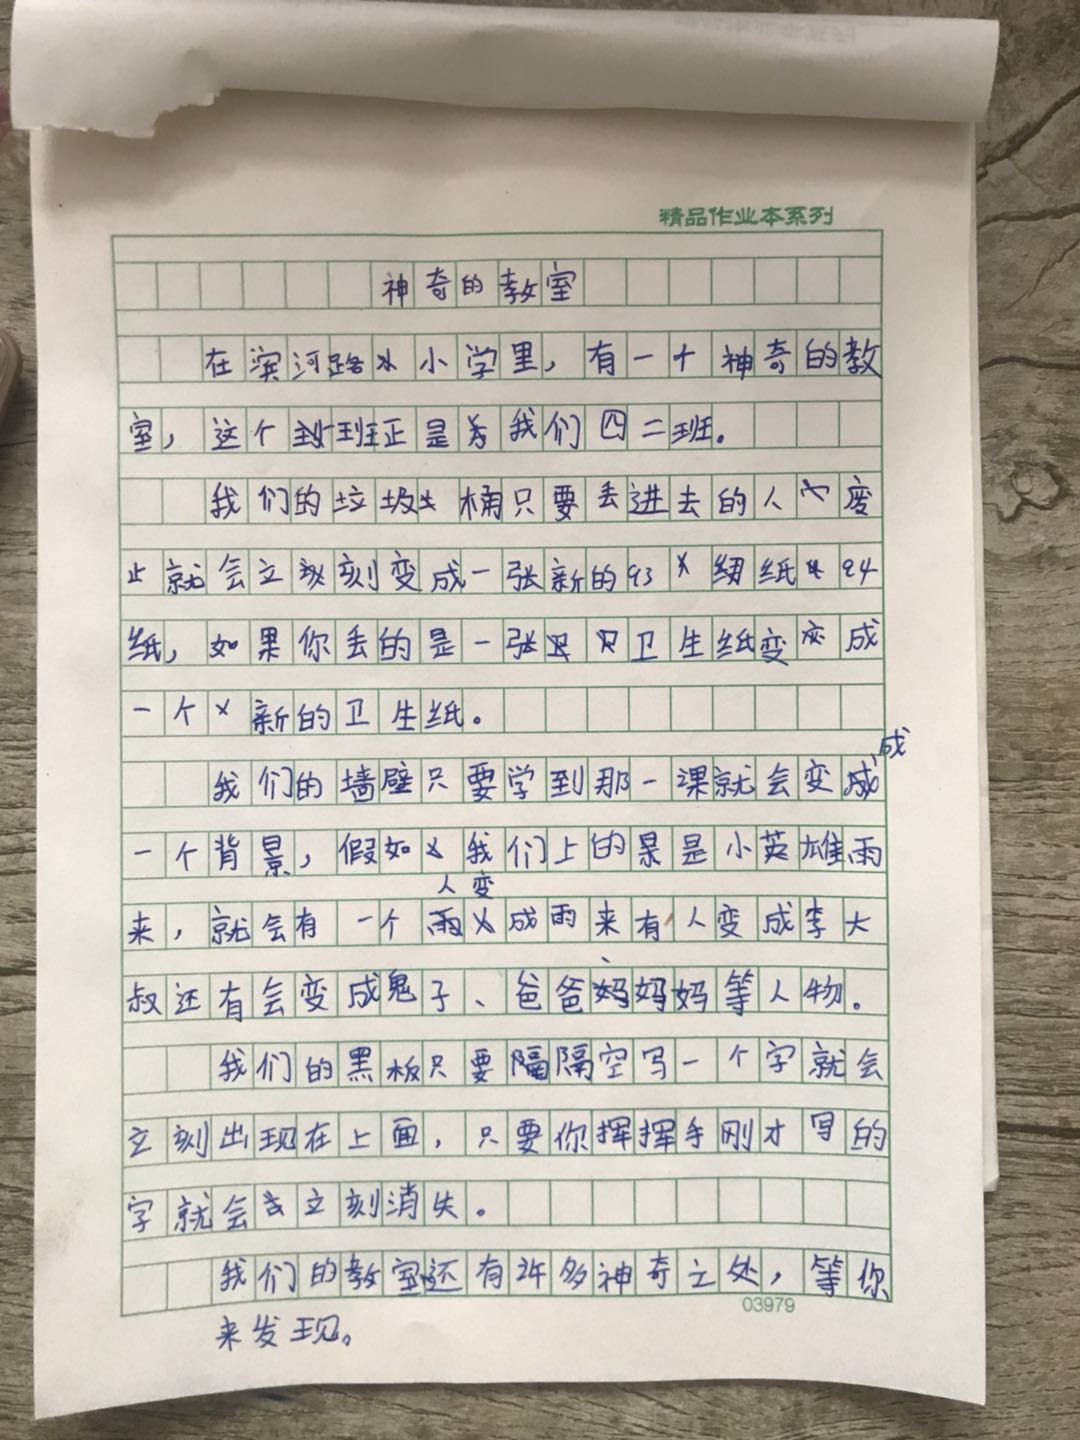 精品作业本系列
神奇的教室
在滨河路小学里，有一个神奇的教
室，这个班正是我们四二班。
我们的垃圾桶只要丢进去的人废
就会立刻变成一张新的纸
纸，如果你丢的是一张卫生纸变成
一个新的卫生纸。
我们的墙壁只要学到那一课就会变成
一个背景，假如我们上的景是小英雄雨
人变
来，就会有一个成雨来有人变成李大
叔还有会变成鬼子、爸爸、妈妈等人物。
我们的黑板只要隔空写一个字就会
立刻出现在上面，只要你挥挥手刚才写的
字就会立刻消失。
我们的教室还有许多神奇之处，等你
03979
来发现。